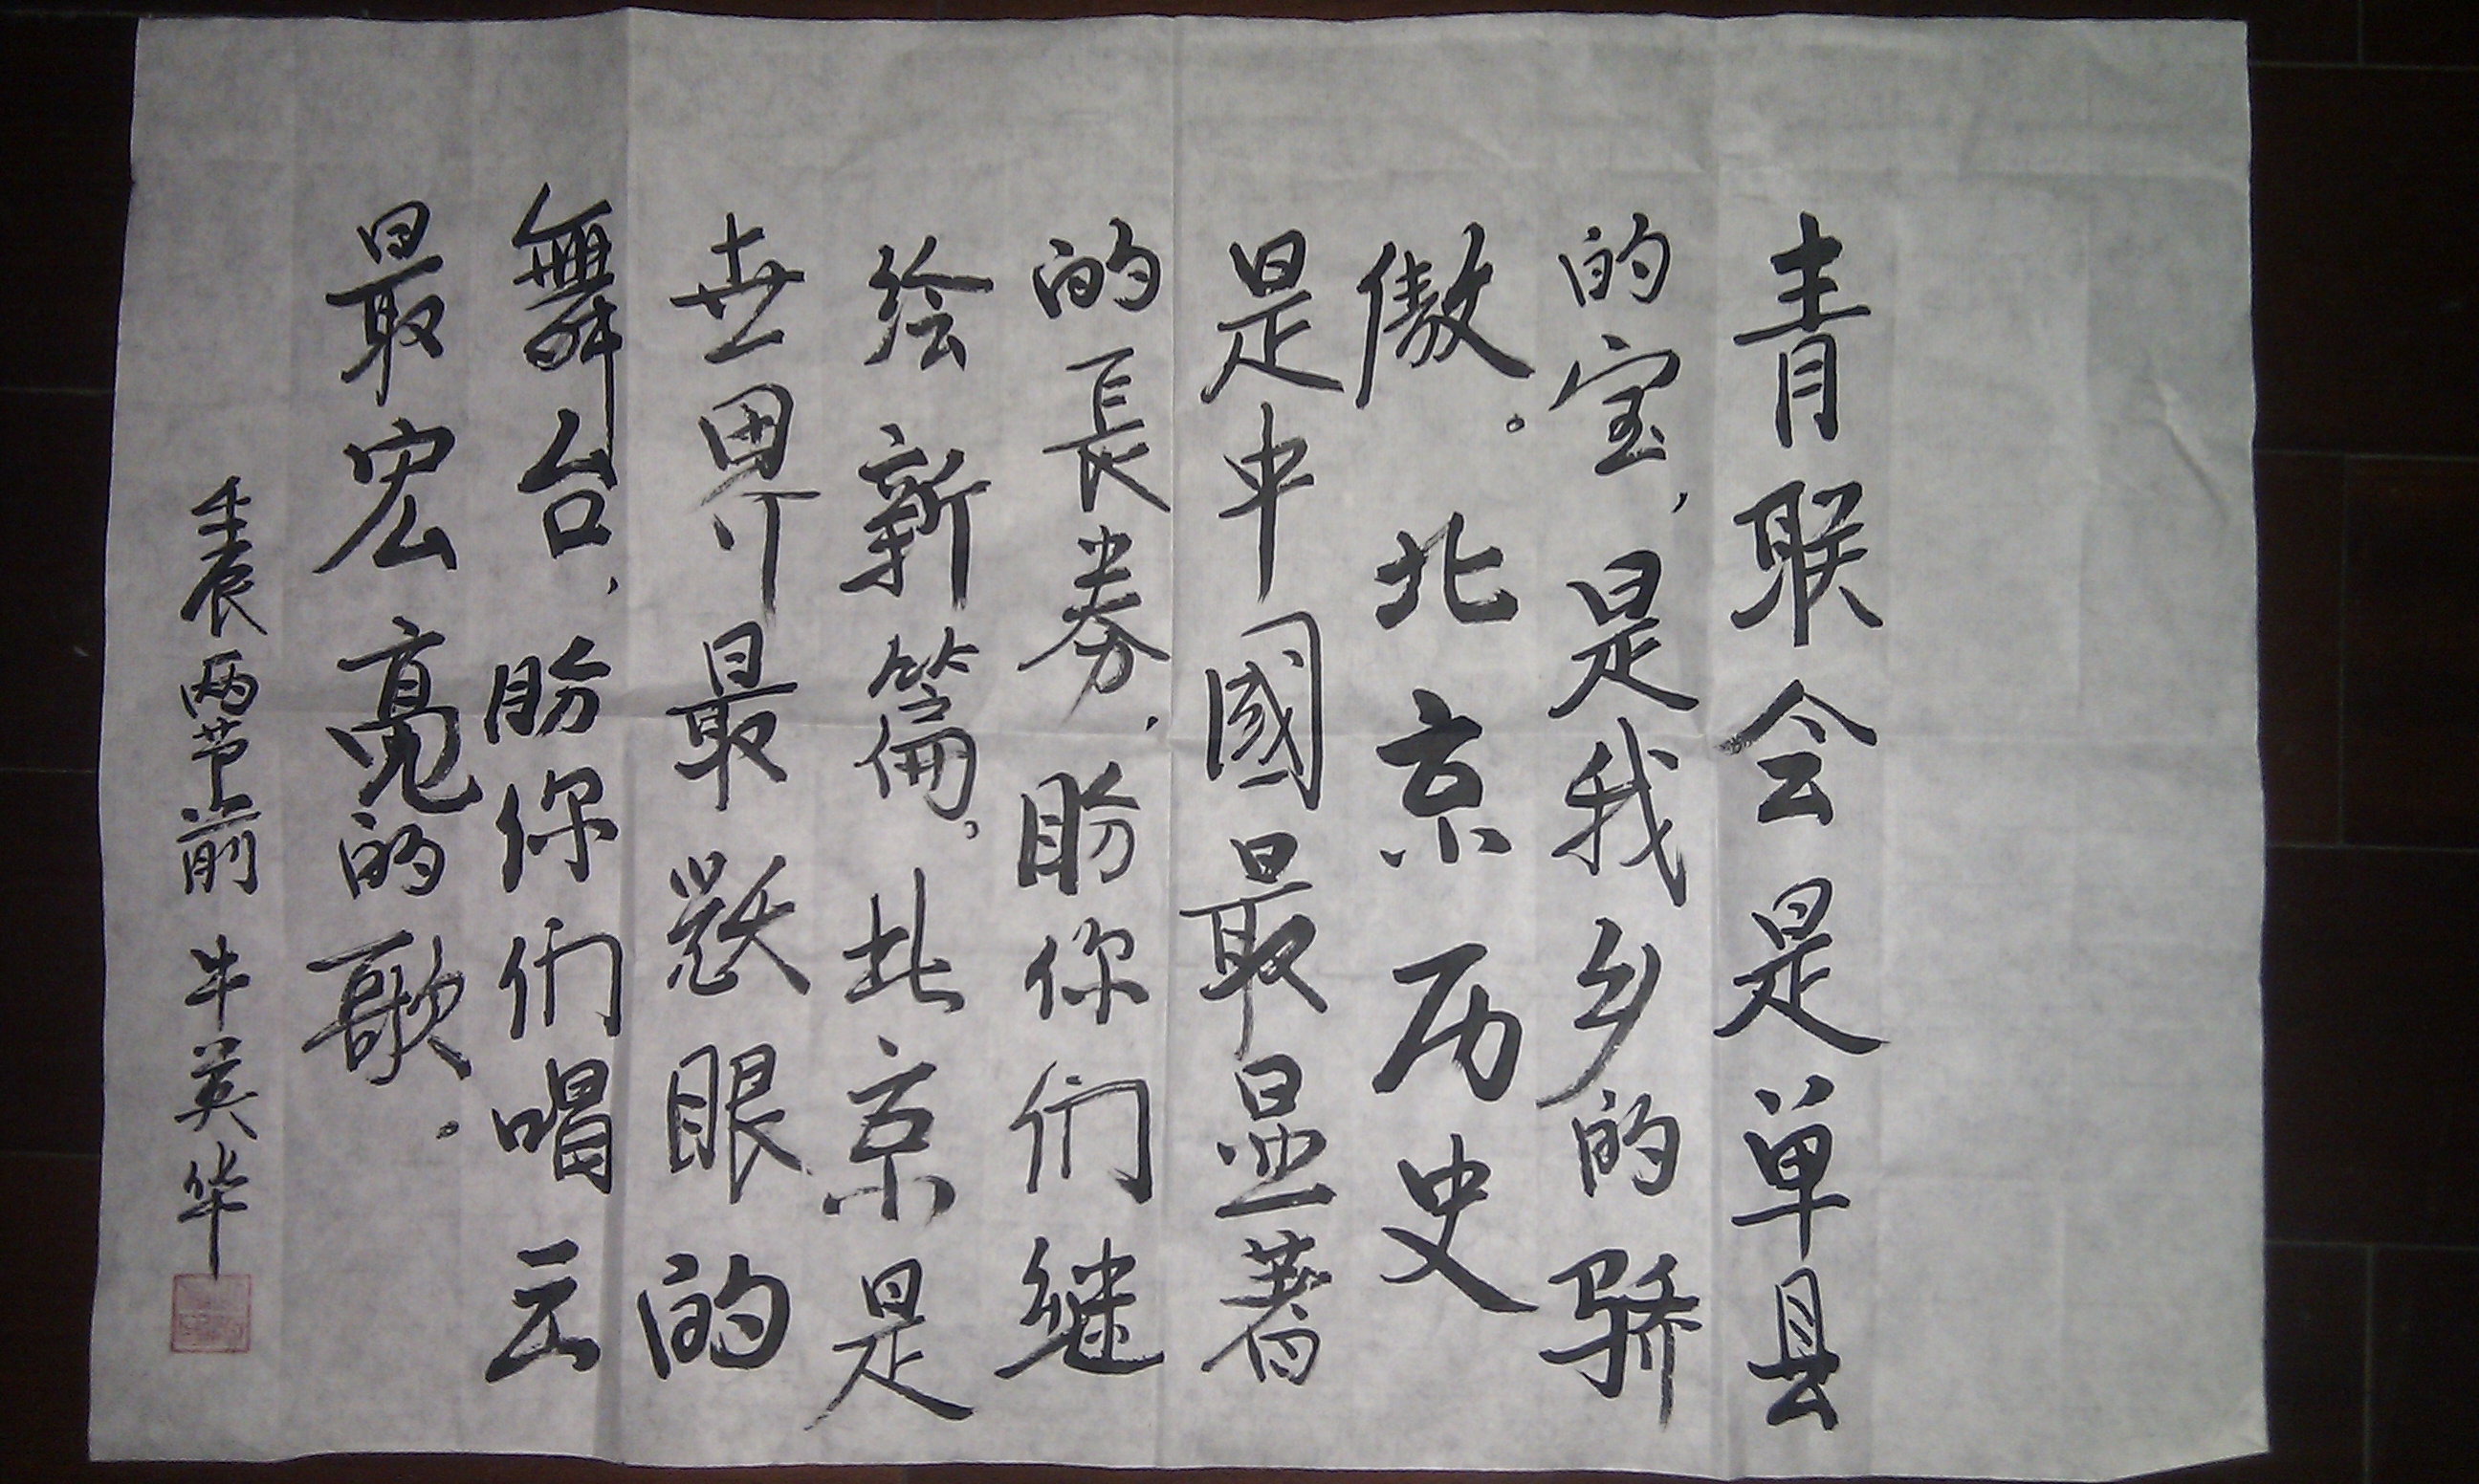 青联会是单县
的宝，是我乡的骄
傲。北京历史
是中國最显著
的長券，盼你们继
绘新篇。北京是
世界最耀眼的
舞台，盼你们唱云
最宏亮的歌。
壬辰两节前 牛英华